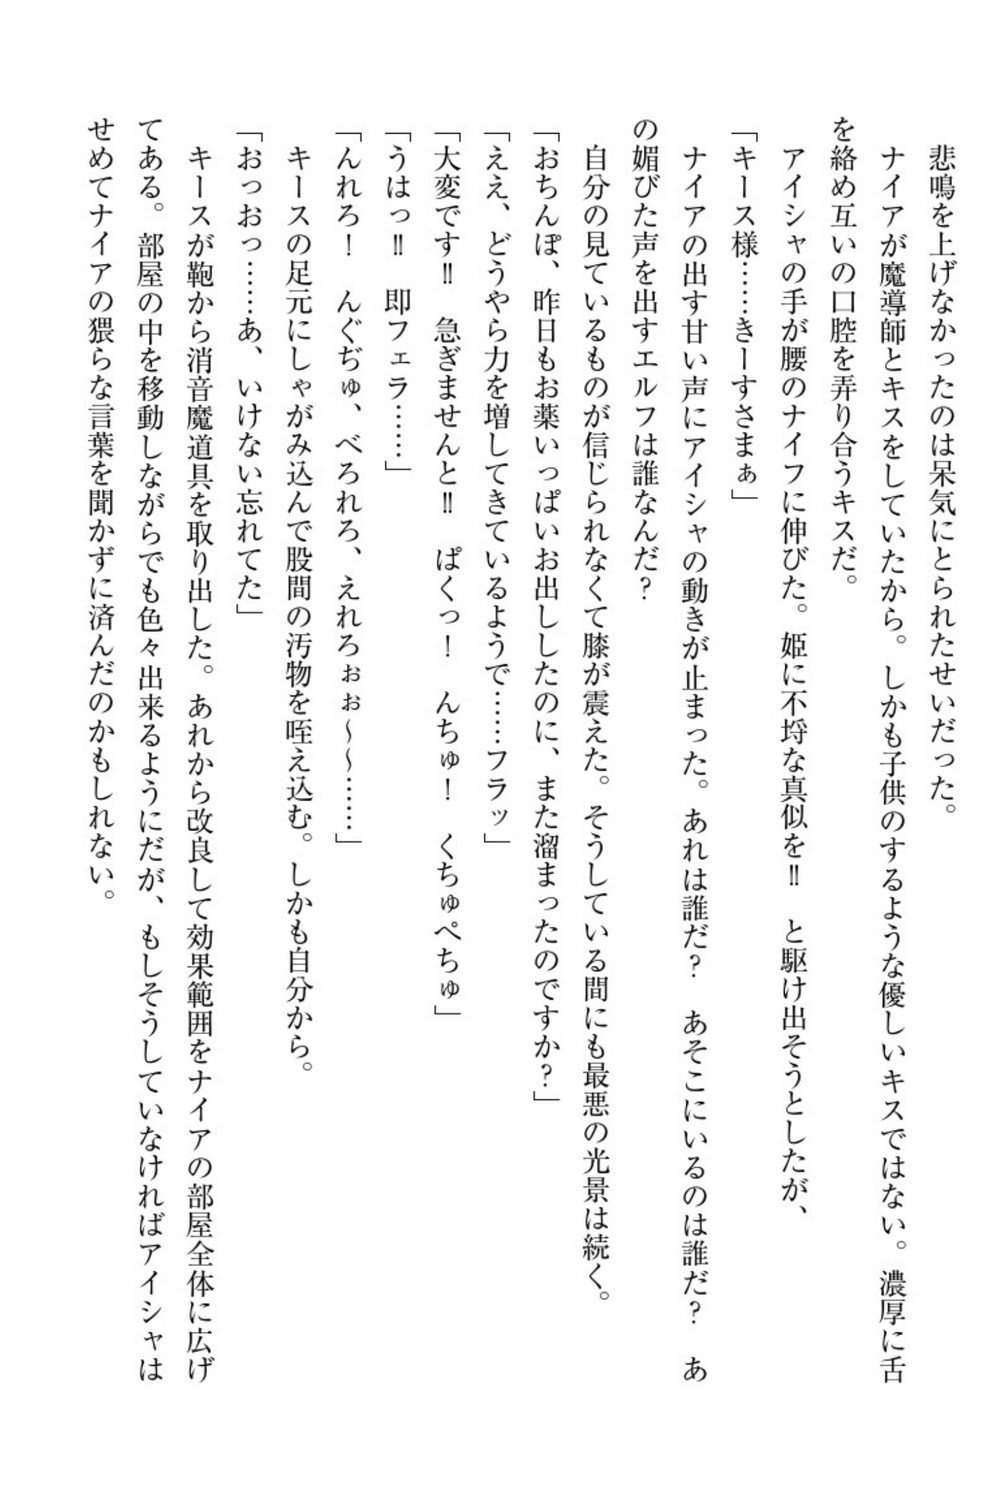 悲鳴を上げなかったのは呆気にとられたせいだった。
ナイアが魔導師とキスをしていたから。しかも子供のするような優しいキスではない。濃厚に舌
を絡め互いの口腔を弄り合うキスだ。
アイシャの手が腰のナイフに伸びた。姫に不埒な真似を‼　と駆け出そうとしたが、
「キース様……きーすさまぁ」
ナイアの出す甘い声にアイシャの動きが止まった。あれは誰だ？　あそこにいるのは誰だ？　あ
の媚びた声を出すエルフは誰なんだ？
自分の見ているものが信じられなくて膝が震えた。そうしている間にも最悪の光景は続く。
「おちんぽ、昨日もお薬いっぱいお出ししたのに、また溜まったのですか？」
「ええ、どうやら力を増してきているようで……フラッ」
「大変です‼　急ぎませんと‼　ぱくっ！　んちゅ！　くちゅぺちゅ」
「うはっ‼　即フェラ……」
「んれろ！　んぐぢゅ、べろれろ、えれろぉぉ～～……」
キースの足元にしゃがみ込んで股間の汚物を咥え込む。しかも自分から。
「おっおっ……あ、いけない忘れてた」
キースが鞄から消音魔道具を取り出した。あれから改良して効果範囲をナイアの部屋全体に広げ
てある。部屋の中を移動しながらでも色々出来るようにだが、もしそうしていなければアイシャは
せめてナイアの猥らな言葉を聞かずに済んだのかもしれない。